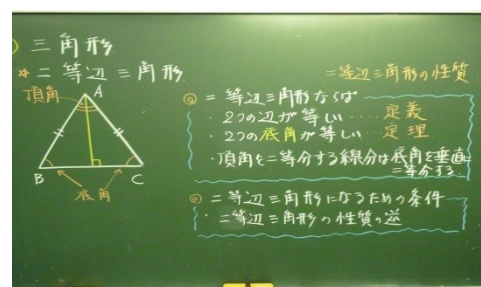 三角形
*二等辺三角形
頂角
A
B
C
底角
二等辺三角形の性質
◎二等辺三角形ならば
・2つの辺が等しい……定義
・2つの底角が等しい……定理
・頂角を二等分する線分は底角を垂直に二等分する
◎二等辺三角形になるための条件
・二等辺三角形の性質の逆